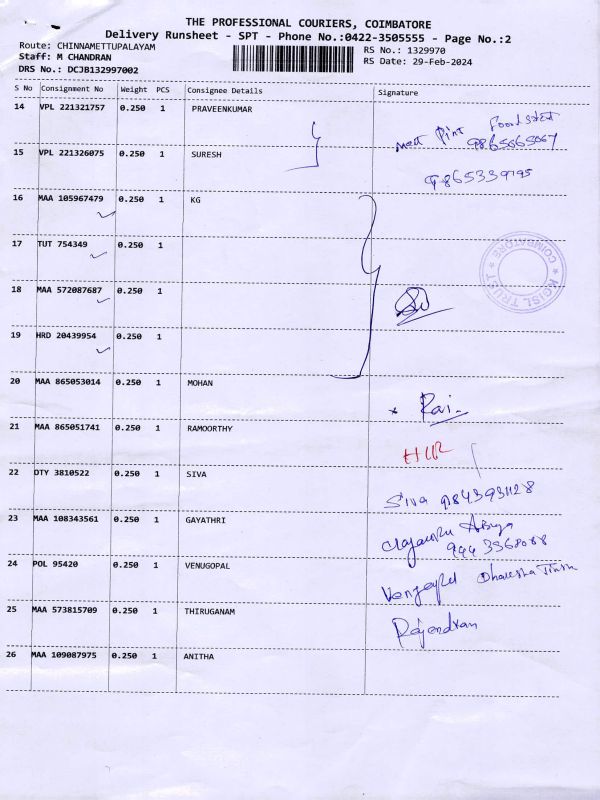 THE PROFESSIONAL COURIERS, COIMBATORE
Delivery Runsheet - SPT - Phone No.:0422-3505555 - Page No.:2
Route: CHINNAMETTUPALAYAM
Staff: M CHANDRAN
DRS No.: DCJB132997002
RS No.: 1329970
RS Date: 29-Feb-2024
S No Consignment No Weight PCS Consignee Details Signature
14 VPL 221321757 0.250 1 PRAVEENKUMAR
15 VPL 221326075 0.250 1 SURESH
16 MAA 105967479 0.250 1 KG
17 TUT 754349 0.250 1
KGISL TRUST * COIMBATORE *
18 MAA 572087687 0.250 1
19 HRD 20439954 0.250 1
20 MAA 865053014 0.250 1 MOHAN
Rai.
21 MAA 865051741 0.250 1 RAMOORTHY
22 DTY 3810522 0.250 1 SIVA
Siva 9843931128
23 MAA 108343561 0.250 1 GAYATHRI
944 3368088
24 POL 95420 0.250 1 VENUGOPAL
25 MAA 573815709 0.250 1 THIRUGANAM
Rajendran
26 MAA 109087975 0.250 1 ANITHA